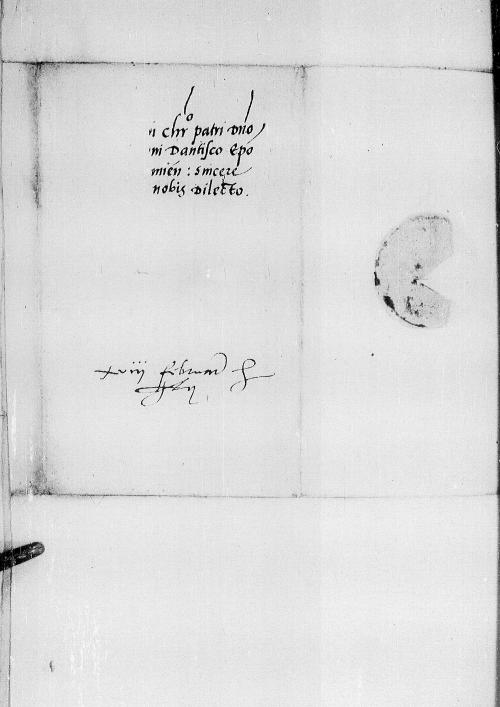 i Chro patri Dno
ni Dantisco Epo
mien : sincere
nobis Dilecto.
xviij februarii